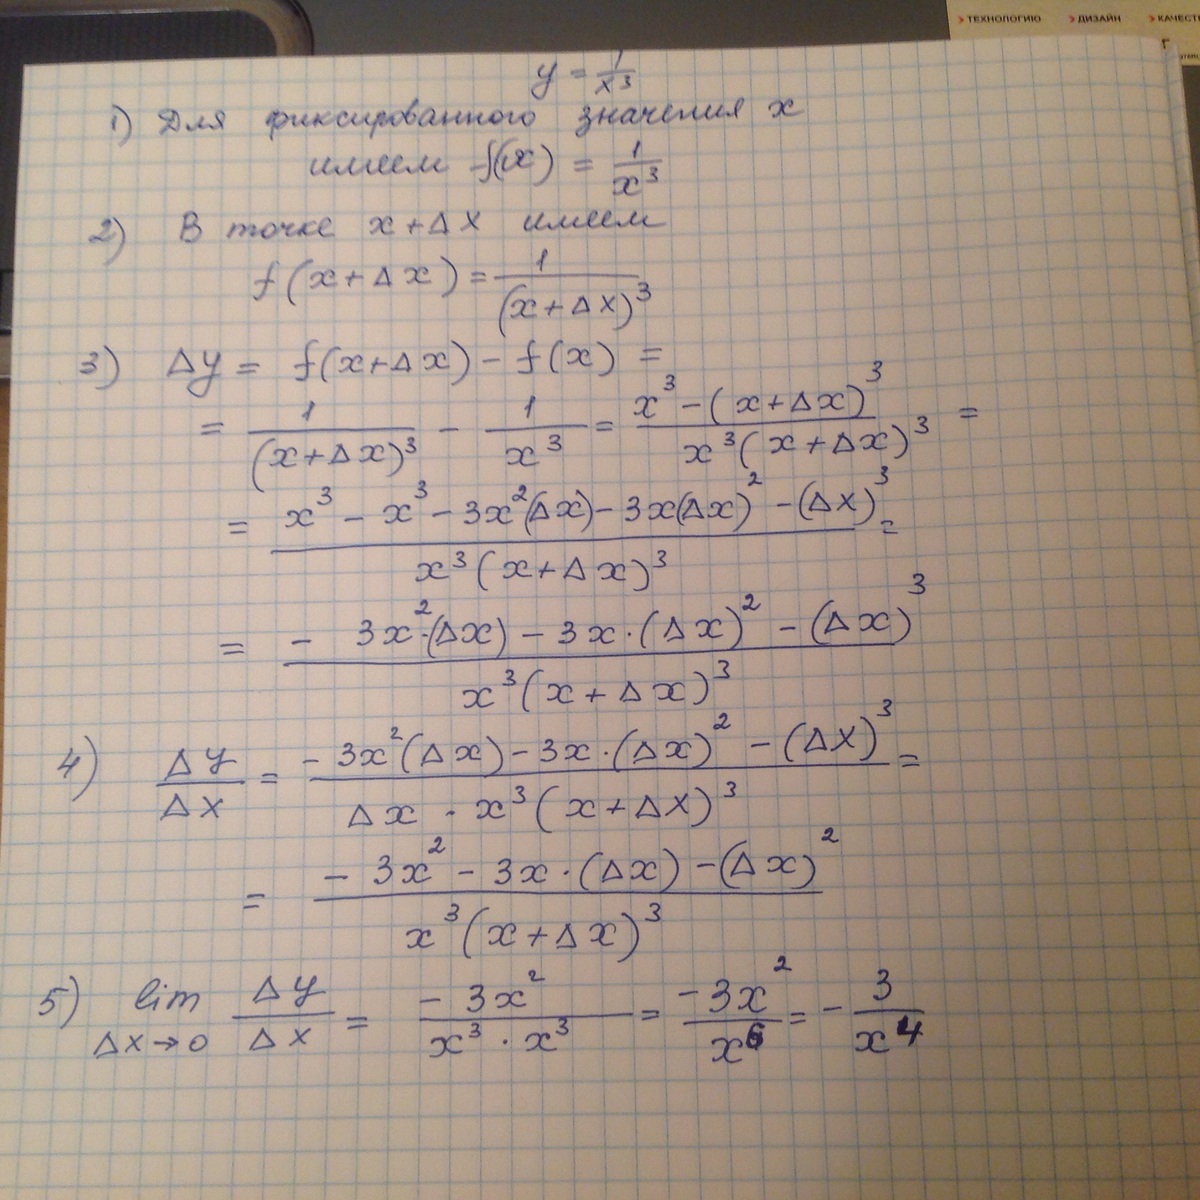 ТЕХНОЛОГИЮ ДИЗАЙН
y = 1/x³
1) Для фиксированного значения x
имеем f(x) = 1/x³
2) В точке x+Δx имеем
f(x+Δx) = 1/(x+Δx)³
3) Δy = f(x+Δx) − f(x) =
= 1/(x+Δx)³ − 1/x³ = (x³−(x+Δx)³)/(x³(x+Δx)³) =
= (x³ − x³ − 3x²(Δx) − 3x(Δx)² − (Δx)³)/(x³(x+Δx)³) =
= (− 3x²·(Δx) − 3x·(Δx)² − (Δx)³)/(x³(x+Δx)³)
4) Δy/Δx = (−3x²(Δx) − 3x·(Δx)² − (Δx)³)/(Δx · x³(x+Δx)³) =
= (− 3x² − 3x·(Δx) − (Δx)²)/(x³(x+Δx)³)
5) lim Δx→0 Δy/Δx = (−3x²)/(x³·x³) = (−3x²)/x⁶ = − 3/x⁴